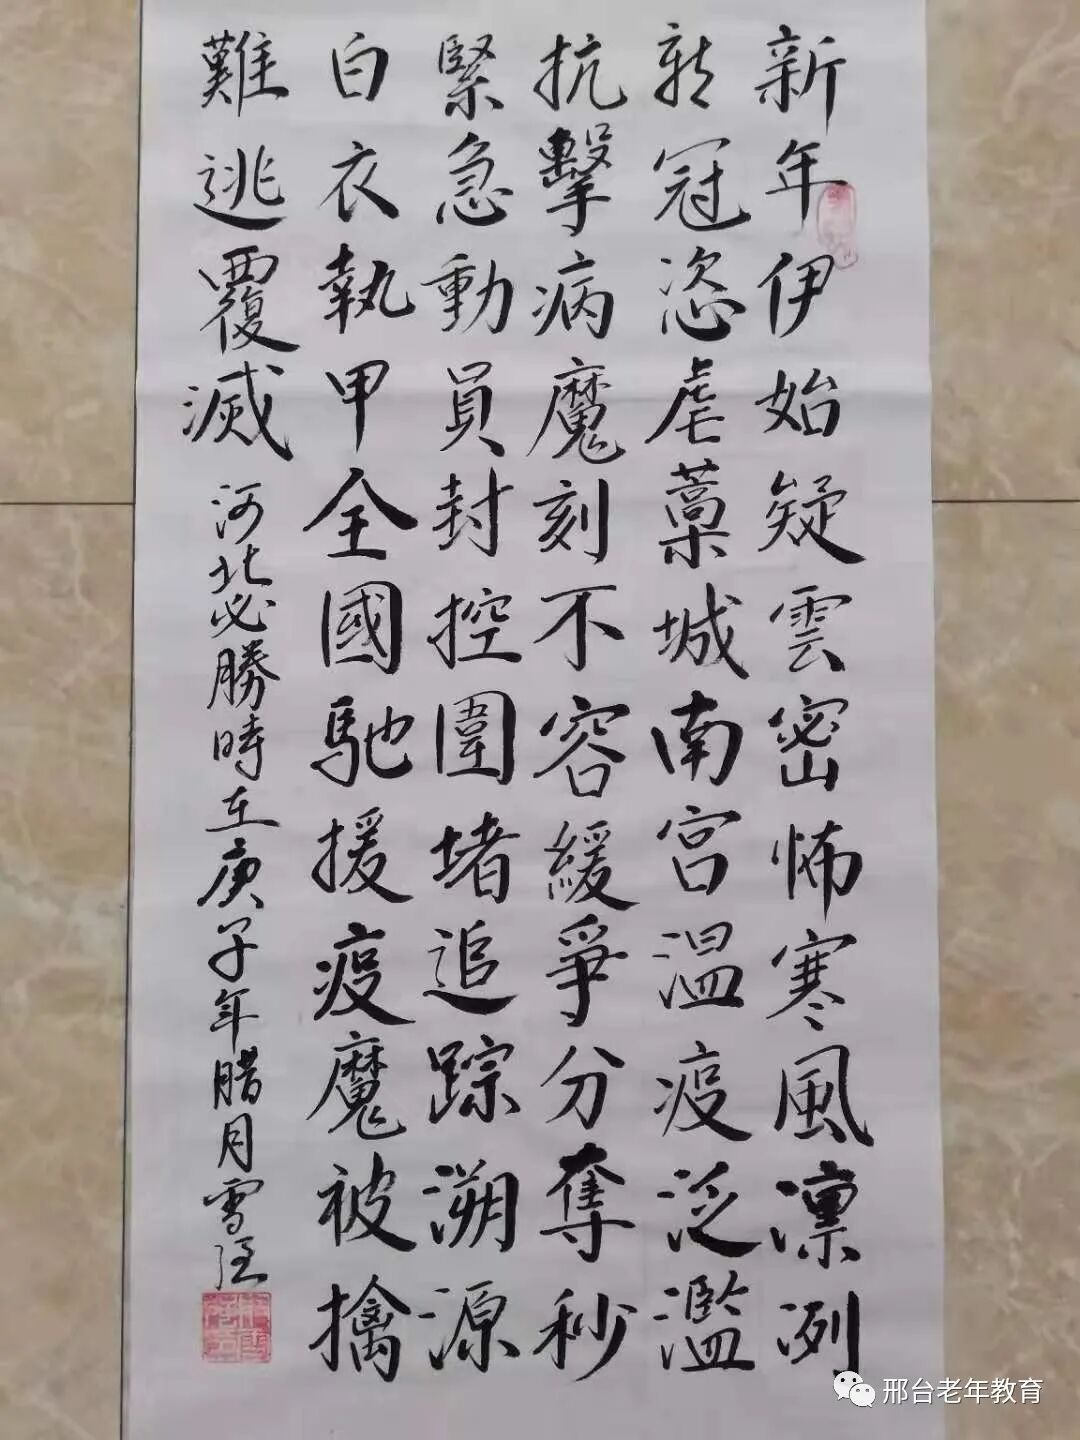 新年伊始疑雲密怖寒風凛冽
新冠恣虐藁城南宫温疫泛濫
抗擊病魔刻不容緩爭分奪秒
緊急動員封控圍堵追踪溯源
白衣執甲全國馳援疫魔被擒
難逃覆滅
河北必勝時在庚子年腊月雪
邢台老年教育